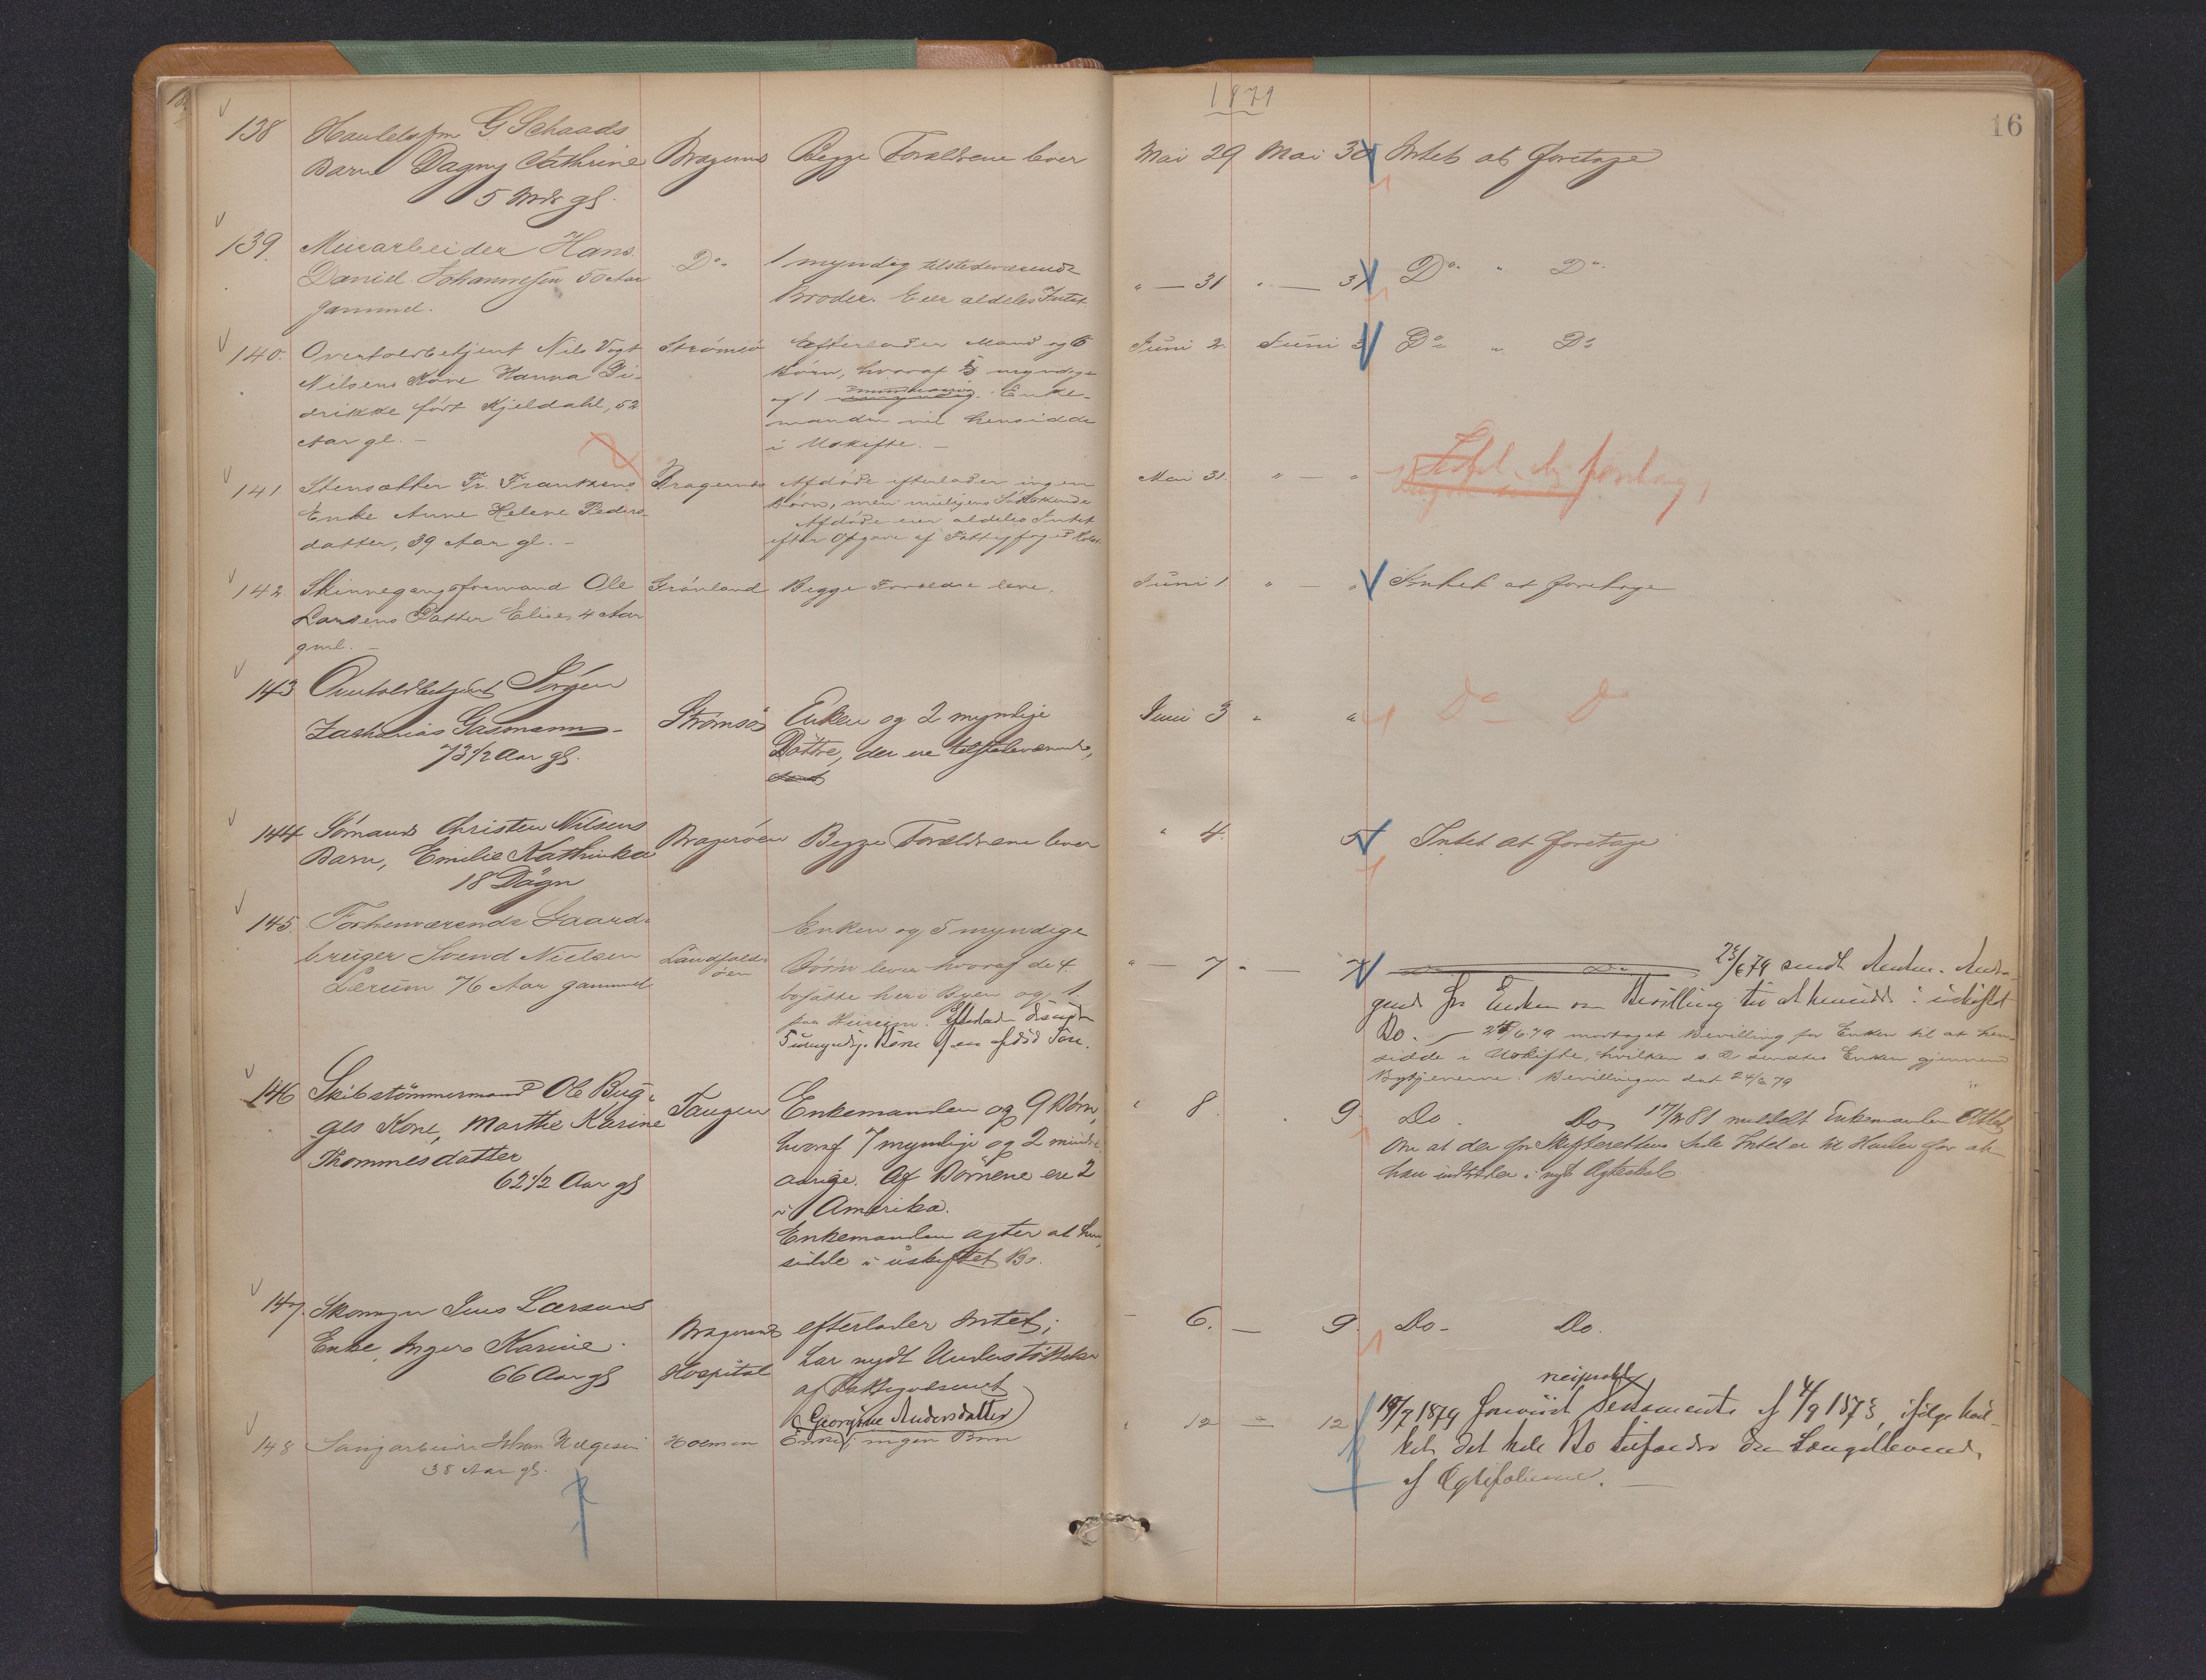 1879
16
138 Handelsfm G Schaads
Barn Dagny Cathrine
5 Mdr gl.
Bragernes
Begge Forældrene lever
Mai 29 Mai 30 Intet at foretage
139. Murarbeider Hans
Daniel Johannesen 50 Aar
gammel.
Do
1 myndig tilstedeværende
Broder. Eier aldeles Intet.
" — 31 " — 31 Do " Do
140. Overtoldbetjent Nils Vogt
Nilsens Kone Hanna Di-
drikke født Kjeldahl, 52
Aar gl. —
Strømsø
Efterlader Mand og 6
Børn, hvoraf 5 myndige
og 1 mindreårig. Enke-
manden vil hensidde
i Uskifte. —
Juni 2. Juni 3 Do " Do
141 Stensætter Fr. Frantzens
Enke Anne Helene Peders-
datter, 39 Aar gl. —
Bragernes
Afdøde efterlader ingen
Børn, men muligens Søskende
Afdøde eier aldeles Intet
efter Opgave af Fattigfoged
Mai 31. " — "
142 Skinnegangsformand Ole
Larsens Datter Elise, 4 Aar
gml. —
Grønland
Begge Forældre leve.
Juni 1 " — " Intet at foretage
143 Overtoldbetjent Jørgen
Zacharias Gasmann —
73 1/2 Aar gl.
Strømsø
Enken og 2 myndige
Døttre, der ere tilstedeværende,
Juni 3 " " Do — Do
144 Sømand Christen Nilsens
Barn, Emilie Kathinka
18 Døgn
Bragerøen
Begge Forældrene lever
" 4. 5 Intet at foretage
145. Forhenværende Gaard-
bruger Svend Nielsen
Lerum 76 Aar gammel
Landfald-
øen
Enken og 5 myndige
Børn lever hvoraf de 4
bosatte her i Byen og 1
paa . Efterlader desuden
5 umyndige Børn af en afdød Søn.
" — 7 " — 7 23/6 79 sendt Amtm. Andra-
gende fra Enken om Bevilling til at hensidde i uskiftet
Bo. — 25/6 79 modtaget Bevilling for Enken til at hen-
sidde i Uskifte, hvilken s. D. sendtes Enken gjennem
. Bevillingen dat 24/6 79
146 Skibstømmermand Ole Bug-
ges Kone, Marthe Karine
Thommesdatter
62 1/2 Aar gl
Tangen
Enkemanden og 9 Børn,
hvoraf 7 myndige og 2 mindre-
aarige. Af Børnene ere 2
i Amerika.
Enkemanden agter at hen-
sidde i uskiftet Bo.
" 8. . 9. Do . Do 81 meddelt Enkemanden Attest
om at der fra Skifterettens Side Intet er til Hinder for at
han indtræder i nyt Ægteskab.
147. Skomager Jens Larsens
Enke, Ingers Karine.
66 Aar gl
Bragernes
Hospital
efterlader Intet;
har nydt Understøttelse
af Fattigvæsenet
— 6. — 9. Do — Do.
148 Saugarbeider Johan Helgesen
38 Aar gl.
Holmen
(Georgine Andersdatter)
Enke, ingen Børn
" 12 — 12
reciprokt
18/7 1879 forevist Testamente af 4/9 1873, ifølge hvil-
ket det hele Bo tilfalder den Længstlevende
af Ægtefolkene. —